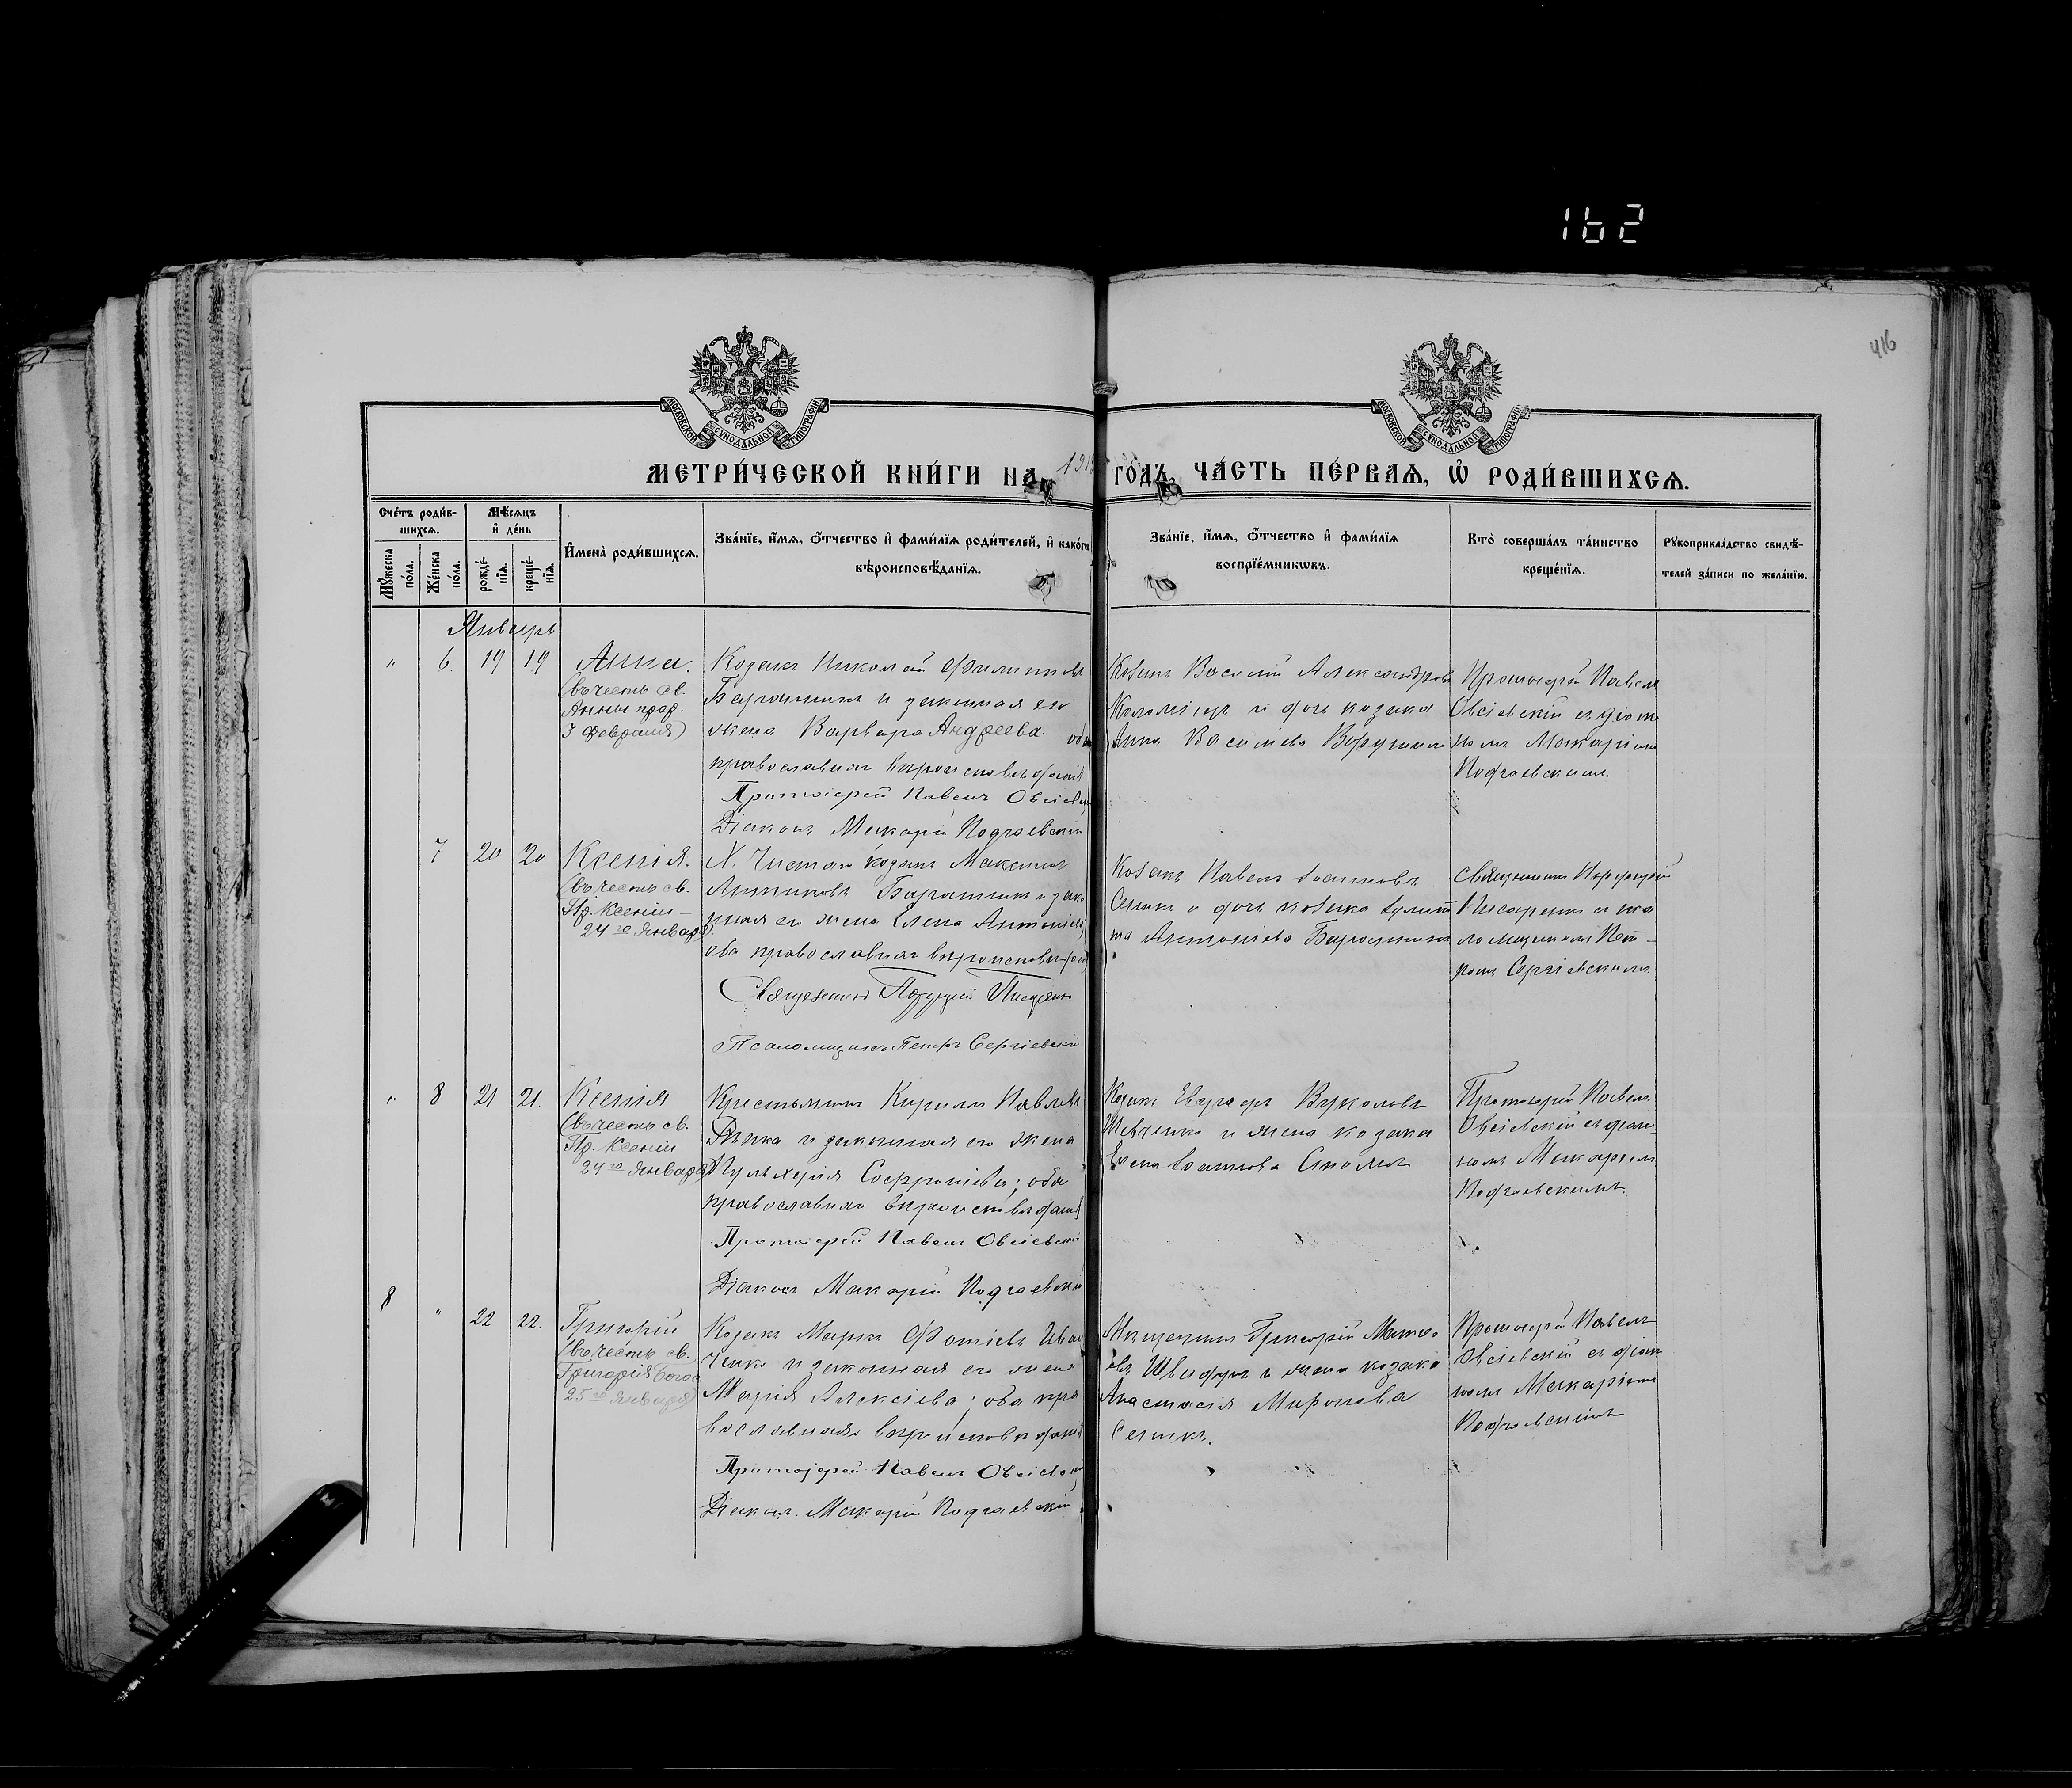 162
416
МОСКОВСКОЙ СѴНОДАЛЬНОЙ ТИПОГРАФІИ
МОСКОВСКОЙ СѴНОДАЛЬНОЙ ТИПОГРАФІИ
МЕТРИ́ЧЕСКОЙ КНИ́ГИ НА 191 ГО́ДЪ, ЧА́СТЬ ПЕ́РВАѦ, Ѡ҆ РОДИ́ВШИХСѦ.
Сче́тъ роди́вшихсѧ.
Мꙋ́жеска по́ла.
Же́нска по́ла.
Мѣ́сѧцъ и҆ де́нь
рожде́нїѧ.
креще́нїѧ.
И҆мена̀ роди́вшихсѧ.
Зва́нїе, и҆́мѧ, ѻ҆́тчество и҆ фами́лїѧ роди́телей, и҆ како́гѡ
вѣроисповѣ́данїѧ.
Зва́нїе, и҆́мѧ, ѻ҆́тчество и҆ фами́лїѧ
воспрїе́мникѡвъ.
Кто̀ соверша́лъ та́инство
креще́нїѧ.
Рꙋкоприкла́дство свидѣ́-
телей за́писи по жела́нїю.
Январь
" 6. 19 19
Анна.
(въ честь св.
Анны прор.
3 февраля)
Козакъ Николай Филиппов
и законная его
жена Варвара Андреева. оба
православнаго вероисповедания
Протоіерей Павелъ Овсіевскій
Діаконъ Макарій Подгаевскій
Козакъ Василій Александров
Коломіецъ и дочь козака
Анна Васильева
Протоіерей Павелъ
Овсіевскій съ діако
номъ Макаріемъ
Подгаевскимъ.
7 20 20
Ксенія.
(въ честь св.
Пр. Ксеніи –
24го Января)
козакъ Максимъ
и зако
нная его жена Елена Антоніева
оба православнаго вероисповедан
Священникъ
Псаломщикъ Петръ Сергіевскій
Козакъ Павелъ
и дочь козака
та Антоніева
Священникъ
Писаренко съ пса
ломщикомъ Пет-
ромъ Сергіевскимъ.
" 8 21 21.
Ксенія
(въ честь св.
Пр. Ксеніи
24го Января)
Крестьянинъ Кириллъ Павловъ
и законная его жена
Пульхерія Софроніева; оба
православнаго вероисповедания
Протоіерей Павелъ Овсіевскій
Діаконъ Макарій Подгаевскій
Козакъ
Шевченко и жена козака
Елена
Протоіерей Павелъ
Овсіевскій съ діако-
номъ Макаріемъ
Подгаевскимъ.
8 " 22 22.
Григорій
(въ честь св.
Григорія Богос
25го Января)
Козакъ Марко Фотіевъ Иван
ченко и законная его жена
Марія Алексіева; оба пра
вославнаго вероисповедания
Протоіерей Павелъ Овсіевскій
Діаконъ Макарій Подгаевскій
Мещанинъ Григорій Матве
евъ и жена козака
Анастасія Миронова
Протоіерей Павелъ
Овсіевскій съ діако
номъ Макаріемъ
Подгаевскимъ